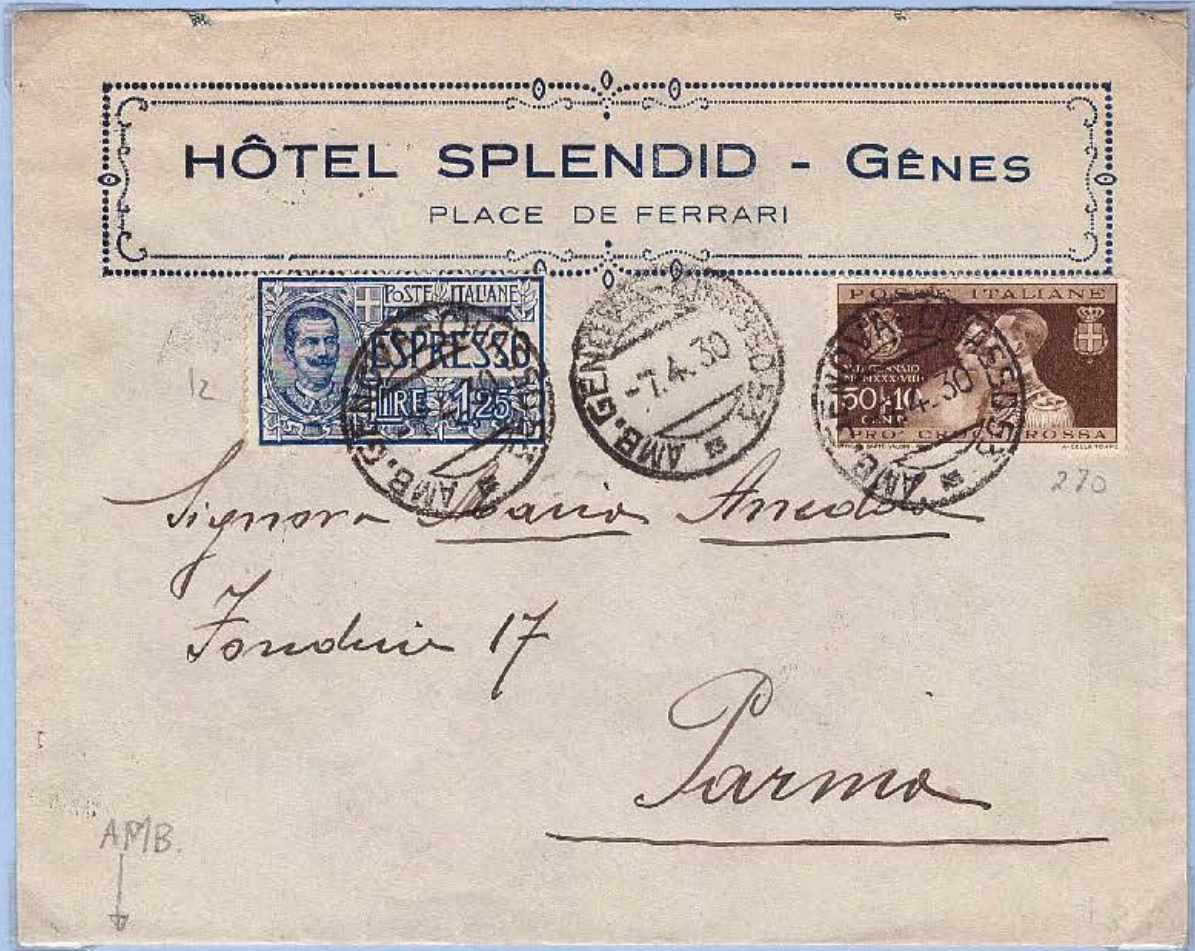 HÔTEL SPLENDID - GÊNES
PLACE DE FERRARI
POSTE ITALIANE
ESPRESSO
LIRE 1,25
AMB. GENOVA
-7.4.30
POSTE ITALIANE
50+10
CENT
PRO CROCE ROSSA
AMB. GENOVA-CHIASSO 53
4.30
12
270
Signora Maria
17
Parma
AMB.